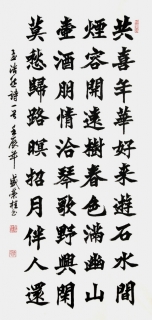 共喜年華好來遊石水間
煙容開遠樹春色滿幽山
壺酒朋情洽琴歌野興閑
莫愁歸路暝招月伴人還
孟浩然詩一首壬辰年